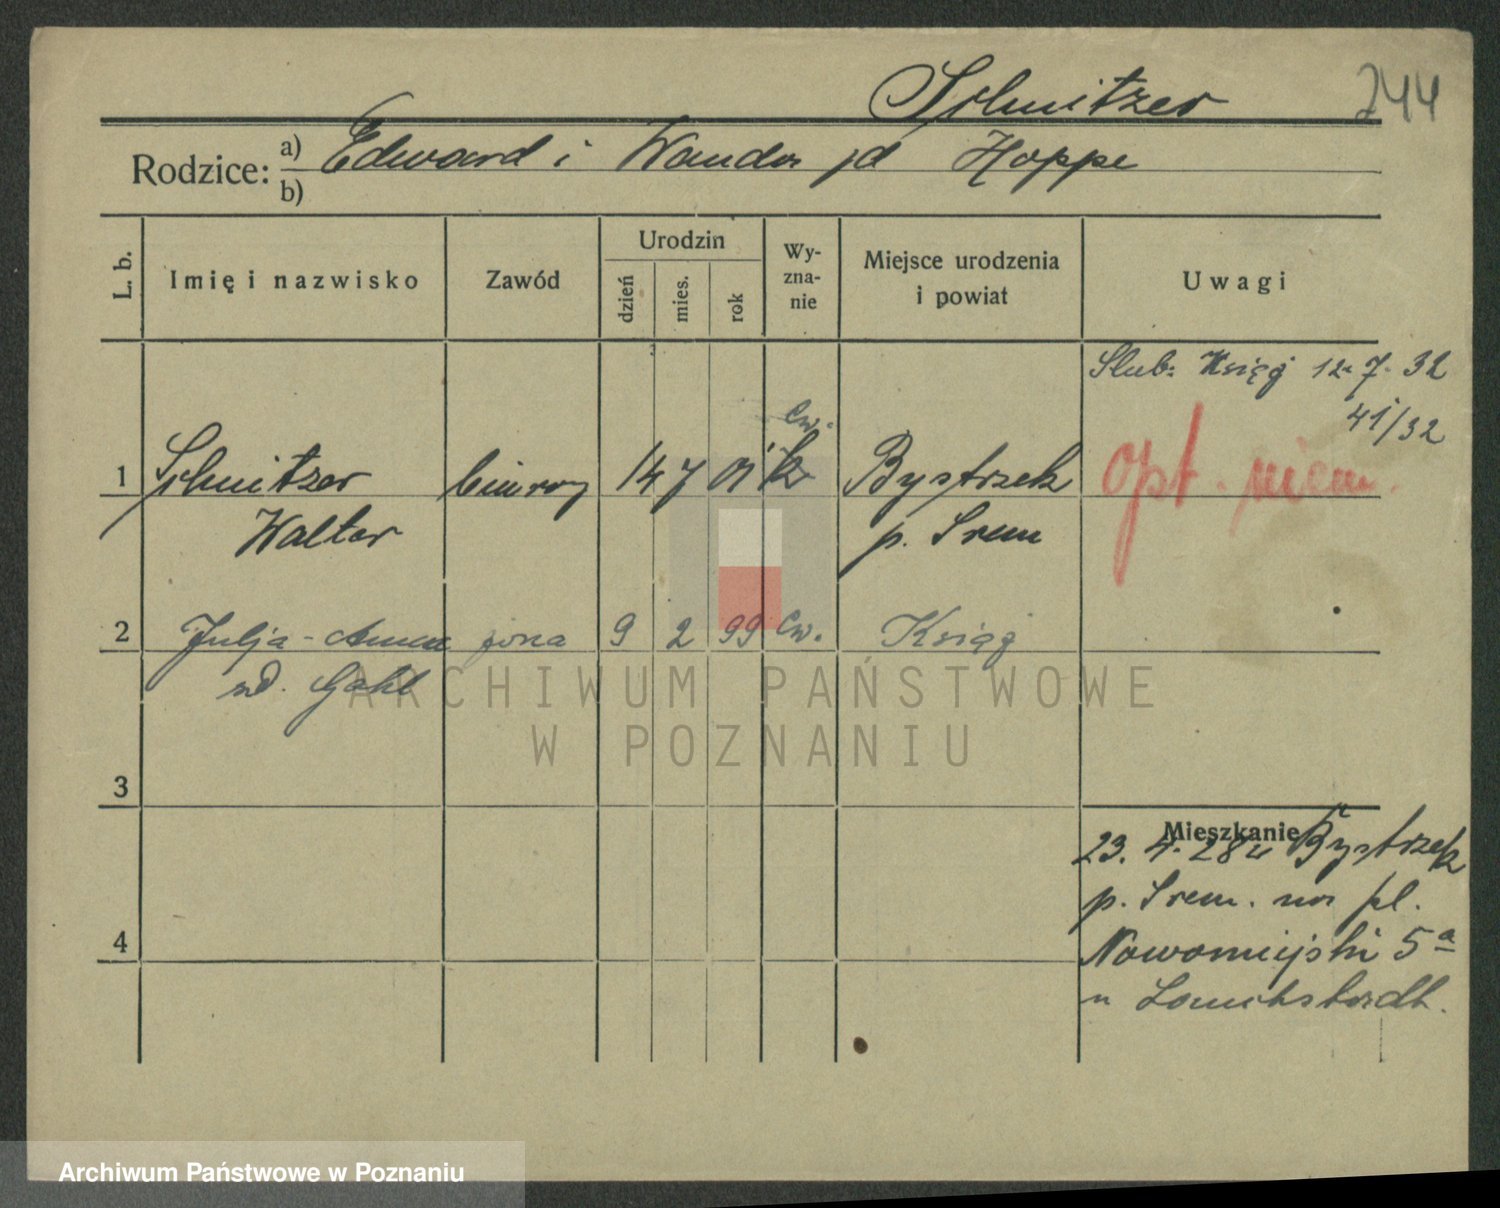 Schnitzer 244
Rodzice: a) Edward i Wanda zd Hoppe
b)
L. b. Imię i nazwisko Zawód Urodzin dzień mies. rok Wy-zna-nie Miejsce urodzenia i powiat Uwagi
Ślub: Książ 12. 7. 32
41/32
ew.
1 Schnitzer biurowy 14 7 01 k Bystrzek opt. niem.
Walter p. Śrem
2 Julja-Anna żona 9 2 99 ew. Książ
zd. Gahl
ARCHIWUM PAŃSTWOWE
W POZNANIU
3
Mieszkanie
23. 4. 28 u Bystrzek
4
p. Śrem. na pl.
Nowomiejski 5a
u
Archiwum Państwowe w Poznaniu